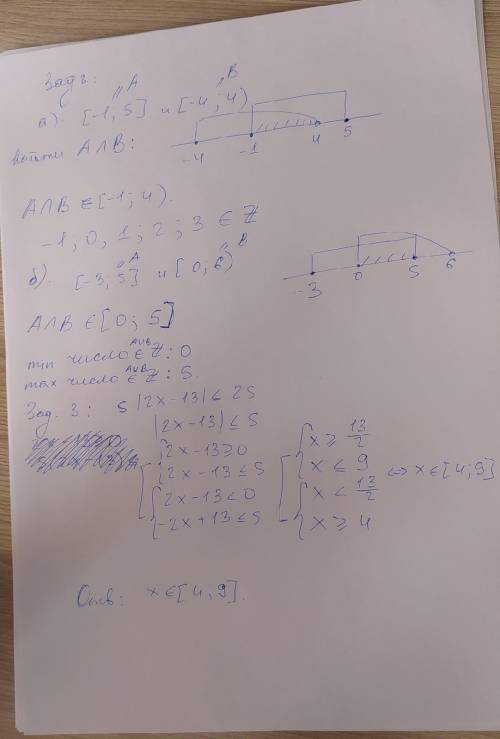 Зад 2:
а). [-1, 5] и [-4; 4)
A B
Найти A∩B:
-4 -1 4 5
A∩B ∈ [-1; 4).
-1, 0, 1; 2; 3 ∈ Z
б). [-3, 5] и [0, 6)
A B
-3 0 5 6
A∩B ∈ [0; 5]
min число ∈ Z: 0
A∪B
max число ∈ Z: 5.
A∪B
Зад. 3: 5|2x-13| ≤ 25
|2x-13| ≤ 5
2x-13≥0 x ≥ 13/2
2x-13 ≤ 5 x ≤ 9
2x-13<0 x < 13/2 ⇔ x∈[4; 9]
-2x+13 ≤ 5 x ≥ 4
Отв: x∈[4; 9].